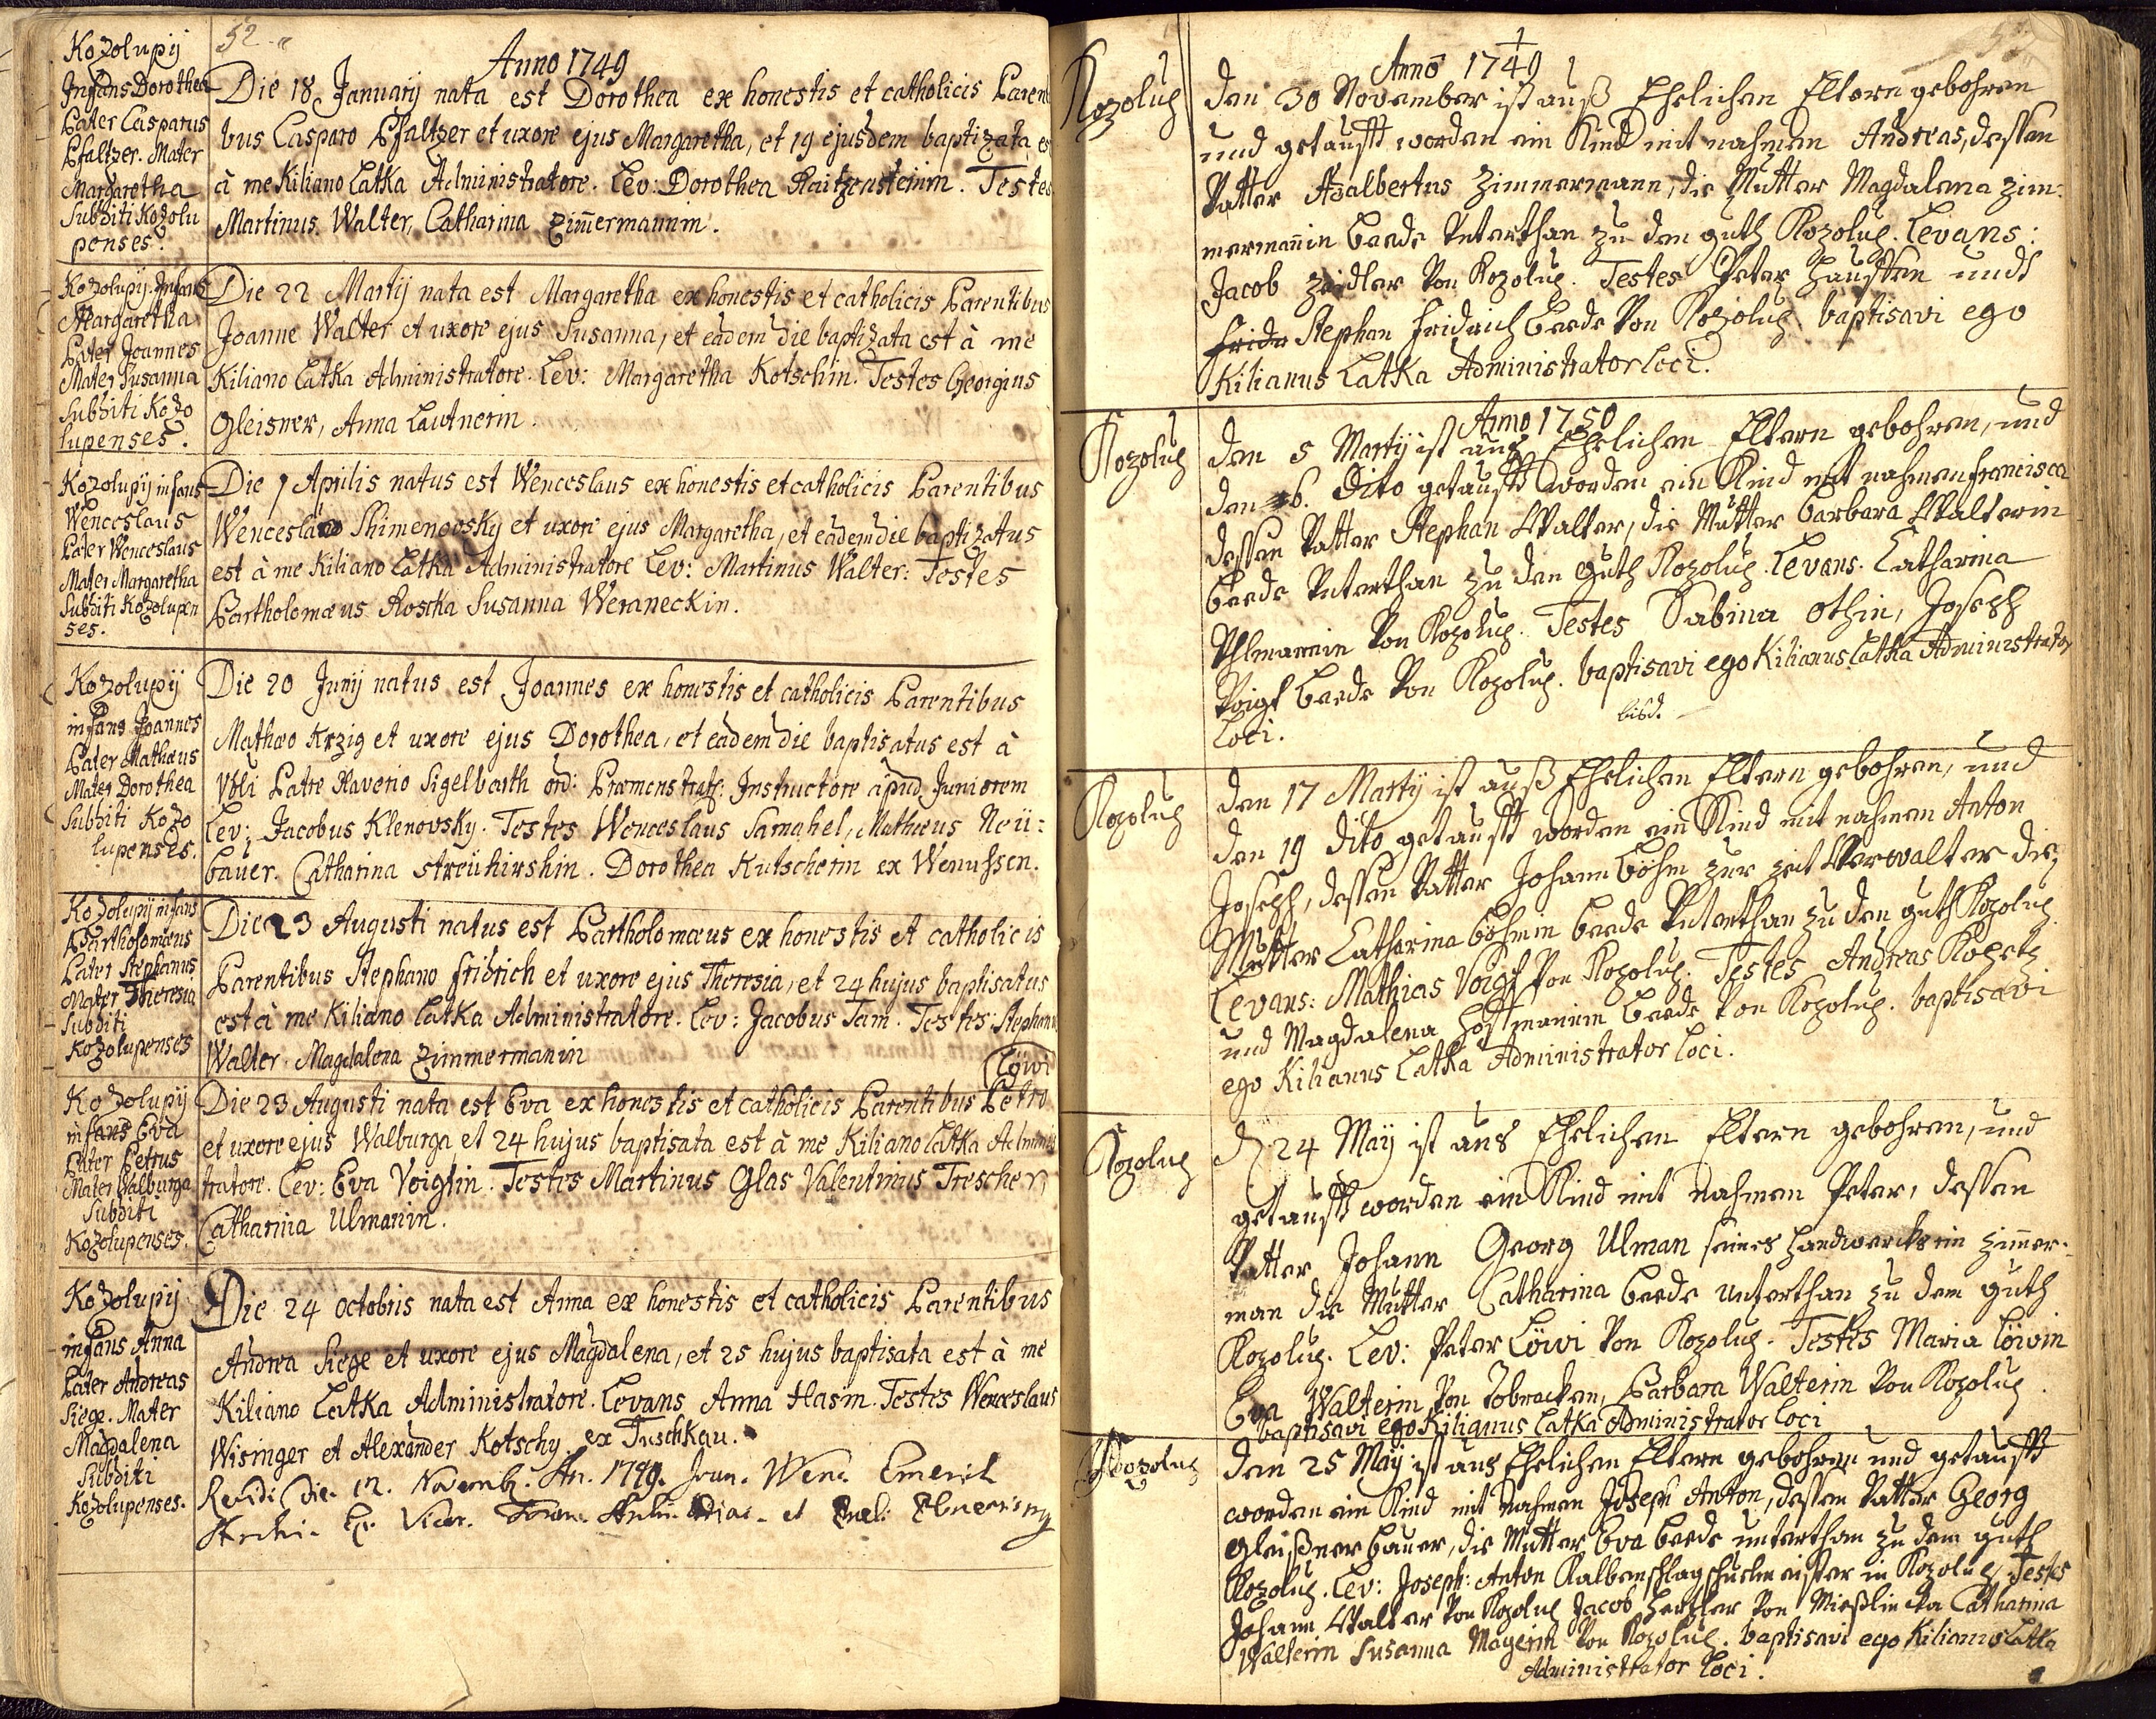 52.
Kozolupij
Infans Dorothea
Pater Casparus
Pfaltzer. Mater
Margaretha
Subditi Kozolu
penses.
Anno 1749
Die 18 Januarij nata est Dorothea ex honestis et catholicis Paren
bus Casparo Pfaltzer et uxore ejus Margaretha, et 19 ejusdem baptizata es
à me Kiliano Latka Administratore. Lev: Dorothea Raitzensteinin. Testes
Martinus Walter, Catharina Zimmermannin.
Kozolupij. Infans
Margaretha
Pater Joannes
Mater Susanna
Subditi Kozo
lupenses.
Die 22 Martij nata est Margaretha ex honestis et catholicis Parentibus
Joanne Walter et uxore ejus Susanna, et eadem die baptizata est à me
Kiliano Latka Administratore. Lev: Margaretha Kotschin. Testes Georgius
Gleisner, Anna Lautnerin.
Kozolupij infans
Wenceslaus
Pater Wenceslaus
Mater Margaretha
Subditi Kozolupen
ses.
Die 1 Aprilis natus est Wenceslaus ex honestis et catholicis Parentibus
Wenceslao Shimenovsky et uxore ejus Margaretha, et eadem die baptizatus
est à me Kiliano Latka Administratore Lev: Martinus Walter: Testes
Bartholomæus Roscka Susanna Weraneckin.
Kozolupij
infans Joannes
Pater Mathæus
Mater Dorothea
Subditi Kozo
lupenses.
Die 20 Junij natus est Joannes ex honestis et catholicis Parentibus
Mathæo Krzig et uxore ejus Dorothea, et eadem die baptisatus est à
Patre Xaverio Sigelbarth ord: Præmonstrats: Instructore apud Juniorem
Lev: Jacobus Klenovsky. Testes Wenceslaus Samahel, Mathæus Neü:
bauer. Catharina Streühirshin. Dorothea Kutscherin ex Wenussen.
Kozolupij infans
Bartholomæus
Pater Stephanus
Mater Theresia
Subditi
Kozolupenses
Die 23 Augusti natus est Bartholomæus ex honestis et catholicis
Parentibus Stephano Fridrich et uxore ejus Theresia, et 24 hujus baptisatus
est à me Kiliano Latka Administratore. Lev: Jacobus Tam. Testes: Stephanus
Walter. Magdalena Zimmermanin
Löwi
Kozolupij
infans Eva
Pater Petrus
Mater Walburga
Subditi
Kozolupenses.
Die 23 Augusti nata est Eva ex honestis et catholicis Parentibus Petro
et uxore ejus Walburga, et 24 hujus baptisata est à me Kiliano Latka Adminis
tratore. Lev: Eva Voigtin. Testes Martinus Glas Valentinus Trescher,
Catharina Ulmanin.
Kozolupij
infans Anna
Pater Andreas
Siege. Mater
Magdalena
Subditi
Kozolupenses.
Die 24 octobris nata est Anna ex honestis et catholicis Parentibus
Andrea Siege et uxore ejus Magdalena, et 25 hujus baptisata est à me
Kiliano Latka Administratore. Levans Anna Hasin. Testes Wenceslaus
Wisinger et Alexander Kotschy ex Tuschkau.
Revidi Die 12. Novemb. An. 1749. Joan. Wenc. Emerich
Vicar.
Kozolup
Anno 1749
den 30 November ist auß Ehelichen Eltern gebohren
und getaufft worden ein Kind mit nahmen Andreas, dessen
Vatter Adalbertus Zimmermann, die Mutter Magdalena Zim:
mermanin beede Unterthan zu dem guth Kozolup. Levans:
Jacob Zeidler von Kozolup. Testes Peter Haussen undt
Stephan Fridrich beede von Kozolup. baptisavi ego
Kilianus Latka Administrator Loci.
Kozolup
Anno 1750
den 5 Martij ist auß Ehelichen Eltern gebohren, und
den 6. dito getaufft worden ein Kind mit nahmen Francisca
dessen Vatter Stephan Walter, die Mutter Barbara Walterin
beede Unterthan zu dem Guth Kozolup. Levans. Catharina
Uhlmanin von Kozolup. Testes Sabina Othin, Joseph
Voigt beede von Kozolup. baptisavi ego Kilianus Latka Administrator
Loci.
Kozolup
den 17 Martij ist auß Ehelichen Eltern gebohren, und
den 19 dito getaufft worden ein Kind mit nahmen Anton
Joseph, dessen Vatter Johann Böhm zur zeit Verwalter die
Mutter Catharina Böhmin beede Unterthan zu dem guth Kozolup
Levans: Mathias Voigt von Kozolup. Testes Andreas Kopetz
und Magdalena Hoffmannin beede von Kozolup. baptisavi
ego Kilianus Latka Administrator loci.
Kozolup
24 Maij ist aus Ehelichen Eltern gebohren, und
getaufft worden ein Kind mit nahmen Peter, dessen
Vatter Johann Georg Ulman seines Handwercks ein Zimmer-
man die Mutter Catharina beede unterthan zu dem guth
Kozolup. Lev: Peter Löwi von Kozolup. Testes Maria Löwin
Eva Walterin von Dobracken, Barbara Walterin von Kozolup
baptisavi ego Kilianus Latka Administrator loci
Kozolup
den 25 Maij ist aus Ehelichen Eltern gebohren und getaufft
worden ein Kind mit nahmen Joseph Anton, dessen Vatter Georg
Gleißner bauer, die Mutter Eva beede unterthan zu dem guth
Kozolup. Lev: Joseph: Anton Kalbenschlag schulmeister in Kozolup. Testes
Johann Walter von Kozolup Jacob Hertzler von Mießlincka Catharina
Walterin Susanna Mayerin von Kozolup. baptisavi ego Kilianus Latka
Administrator loci.